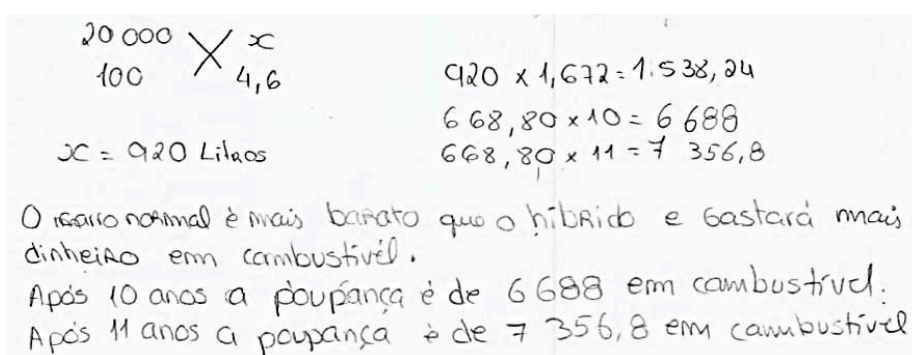 20 000 x
100 4,6
x = 920 Litros
920 x 1,672 = 1.538,24
668,80 x 10 = 6 688
668,80 x 11 = 7 356,8
O carro normal é mais barato que o híbrido e Gastará mais
dinheiro em combustível.
Após 10 anos a poupança é de 6 688 em combustível.
Após 11 anos a poupança é de 7 356,8 em combustível